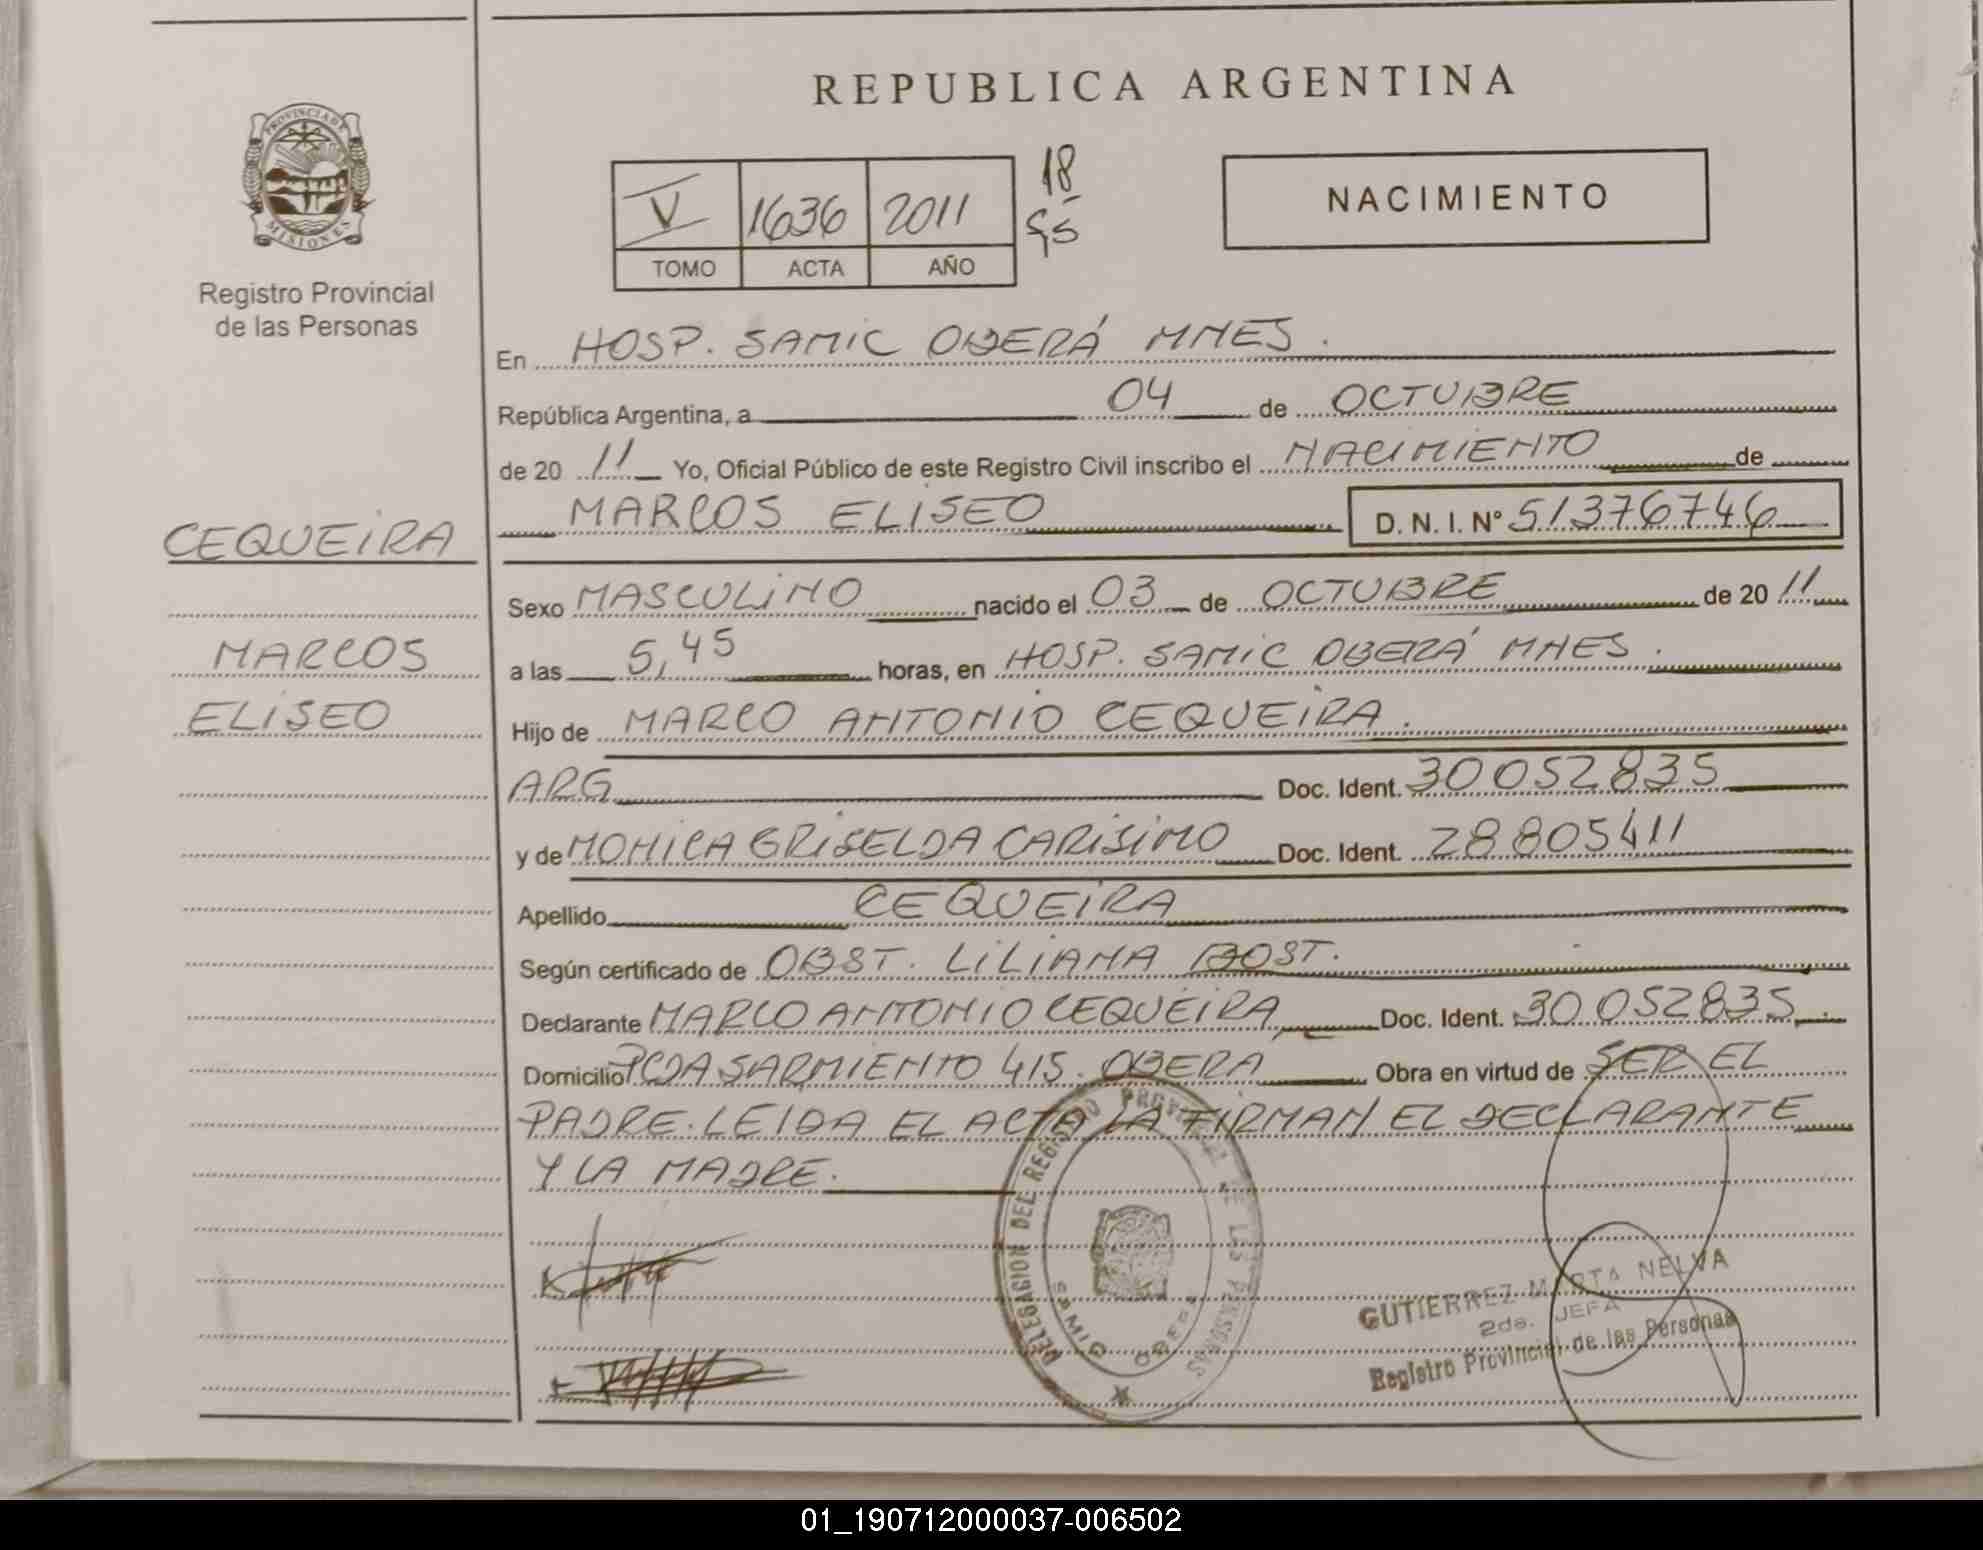 REPUBLICA ARGENTINA
PROVINCIA DE
MISIONES
Registro Provincial
de las Personas
V 1636 2011 18
TOMO ACTA AÑO
NACIMIENTO
En HOSP. SAMIC OBERÁ MNES.
República Argentina, a 04 de OCTUBRE
de 20 11 Yo, Oficial Público de este Registro Civil inscribo el NACIMIENTO de
MARCOS ELISEO D. N. I. N° 51376746
CEQUEIRA
MARCOS
ELISEO
Sexo MASCULINO nacido el 03 de OCTUBRE de 20 11
a las 5,45 horas, en HOSP. SAMIC OBERÁ MNES.
Hijo de MARCO ANTONIO CEQUEIRA.
ARG Doc. Ident. 30052835
y de MONICA GRISELDA CARISIMO Doc. Ident. 28805411
Apellido CEQUEIRA
Según certificado de OBST. LILIANA BOST.
Declarante MARCO ANTONIO CEQUEIRA Doc. Ident. 30052835.
Domicilio PCDA SARMIENTO 415. OBERA Obra en virtud de SER EL
PADRE. LEIDA EL ACTA LA FIRMAN EL DECLARANTE
Y LA MADRE.
DELEGACION DEL REGISTRO PROVINCIAL DE LAS PERSONAS
GUTIERREZ MARTA NELVA
2da. JEFA
Registro Provincial de las Personas
01_190712000037-006502